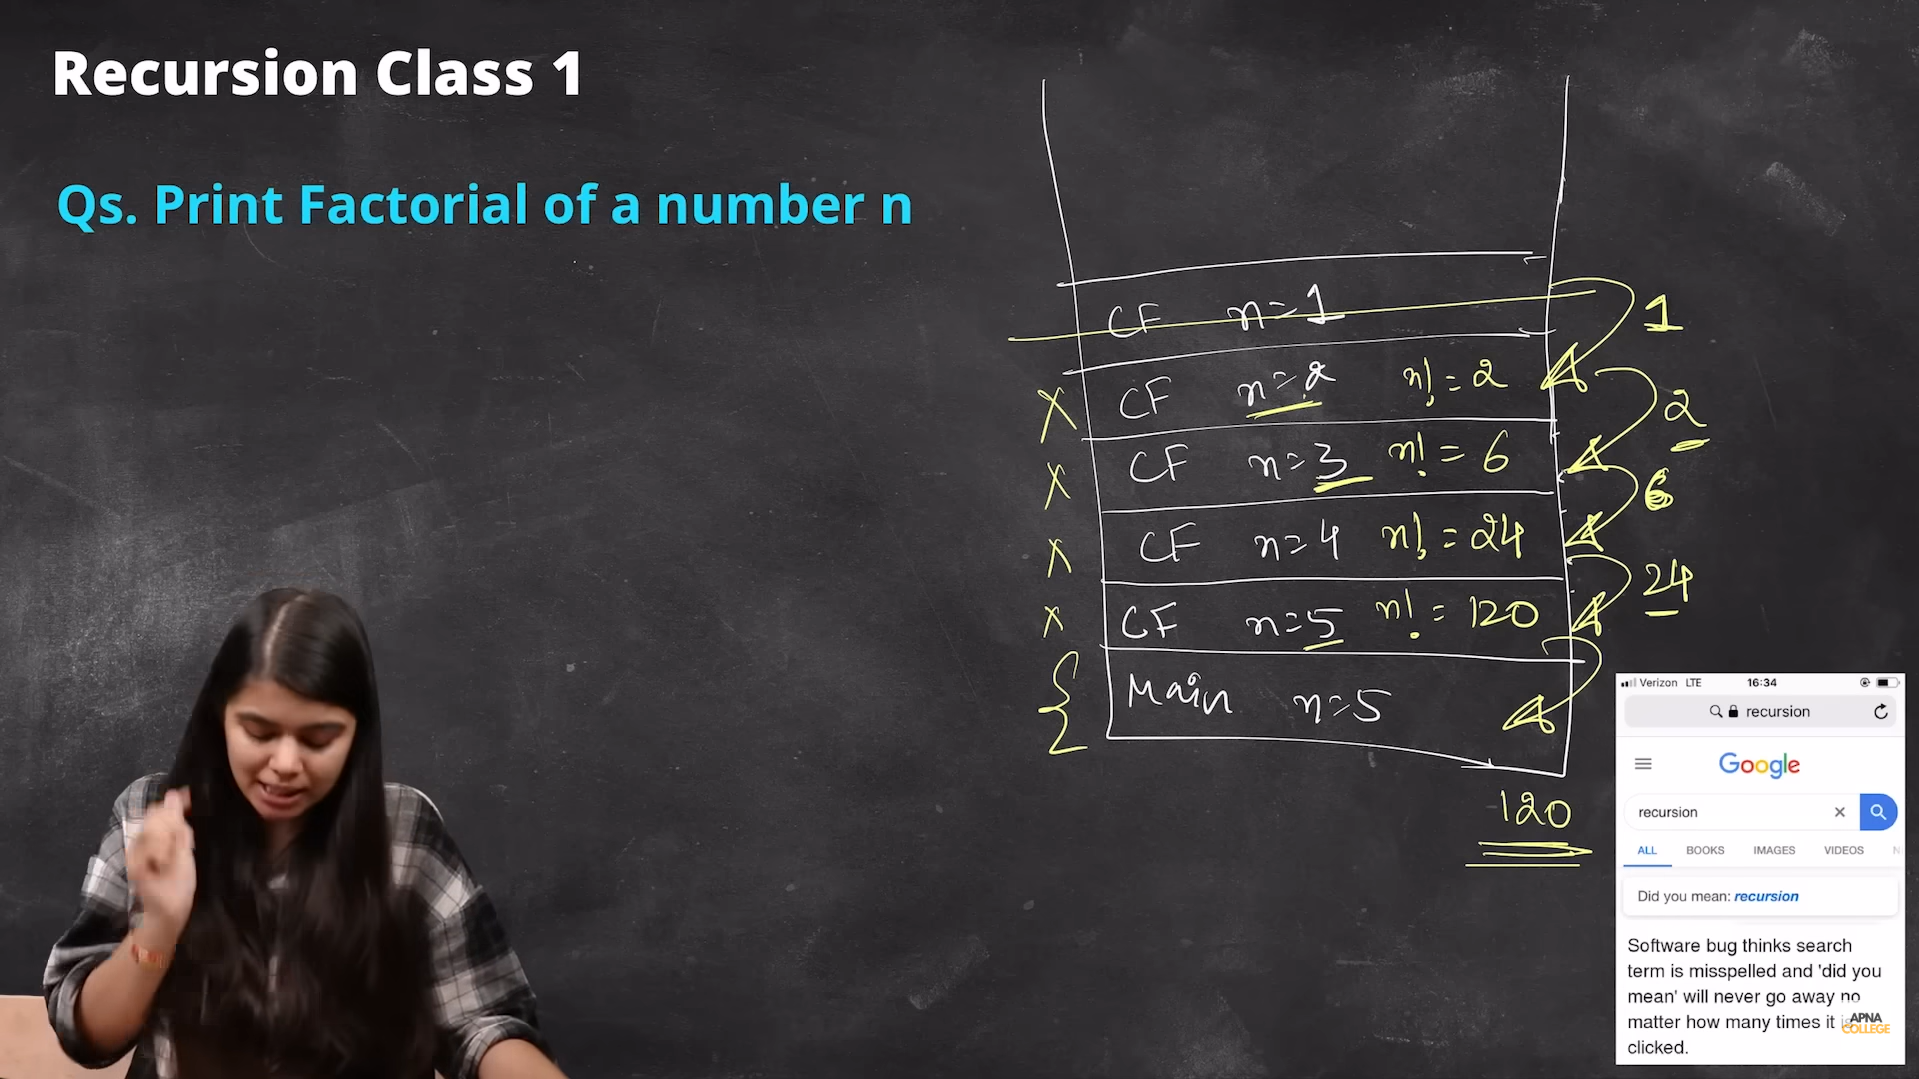 Recursion Class 1
Qs. Print Factorial of a number n
CF n=1
1
CF n=2 n!=2
2
CF n=3 n!=6
6
CF n=4 n!=24
24
CF n=5 n!=120
Main n=5
120
Verizon LTE 16:34
recursion
Google
recursion
ALL BOOKS IMAGES VIDEOS
Did you mean: recursion
Software bug thinks search
term is misspelled and 'did you
mean' will never go away no
matter how many times it is
clicked.
APNA
COLLEGE